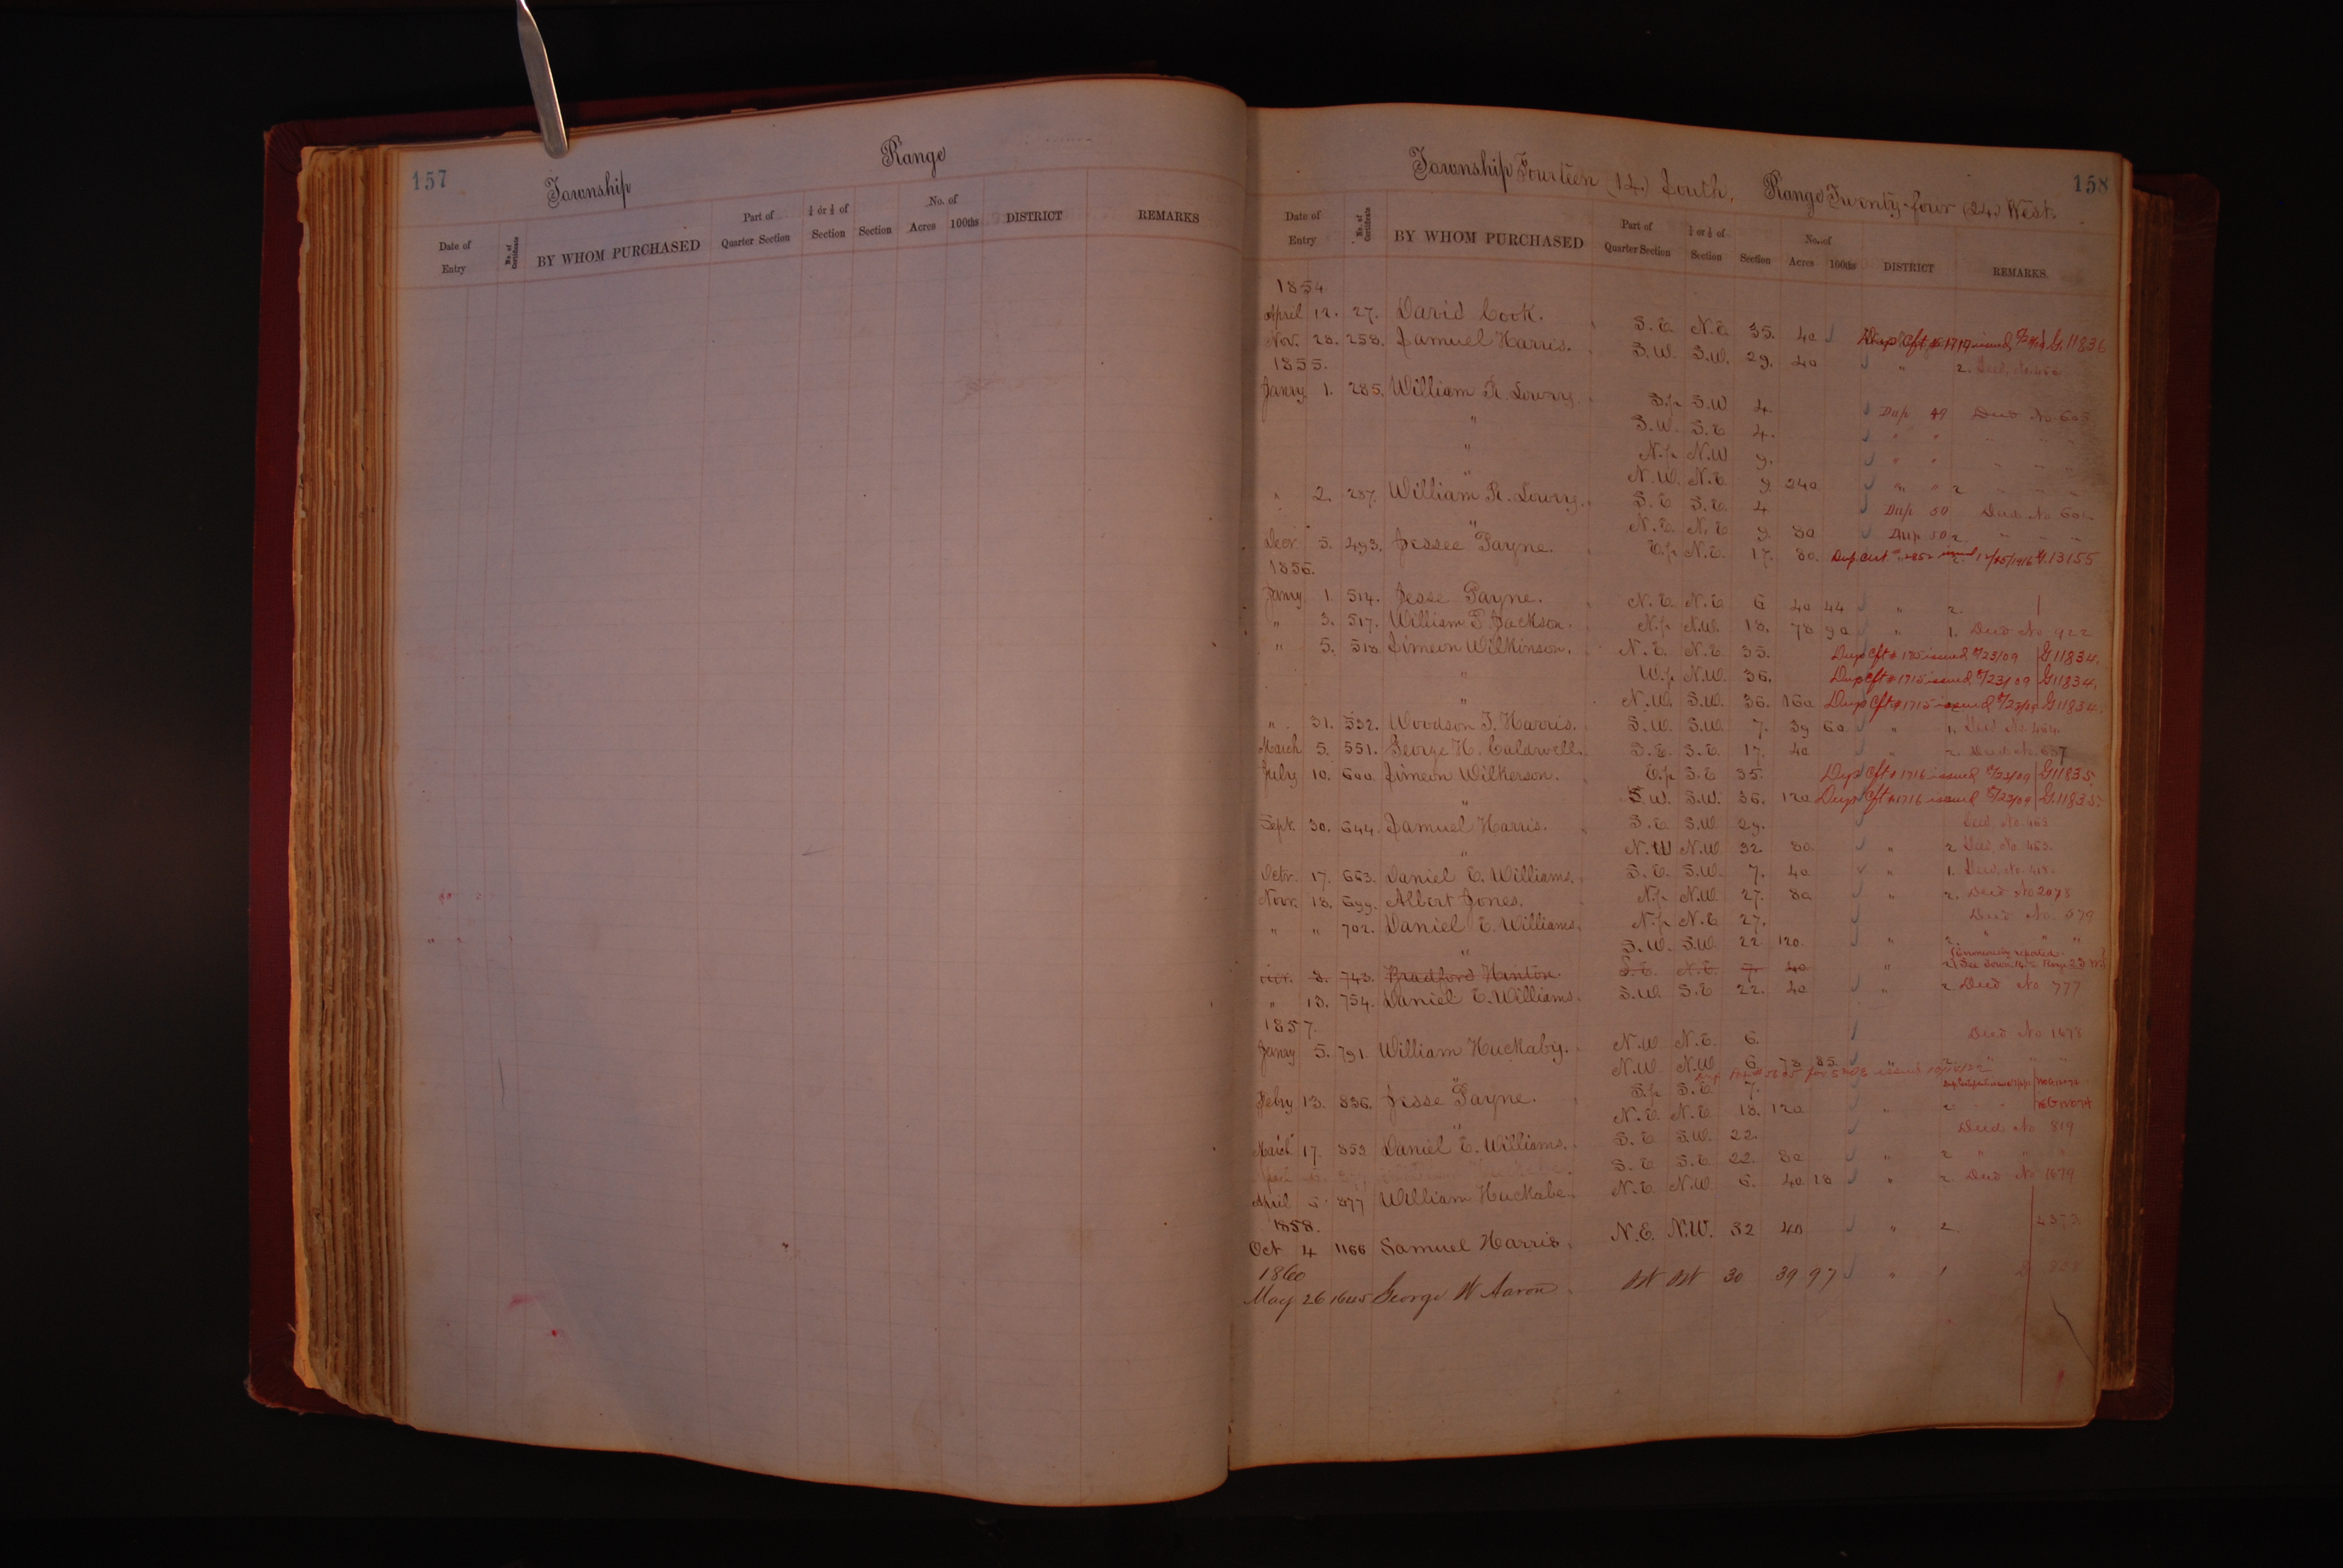 157
Township Range
Date of Entry No. of Certificate BY WHOM PURCHASED Part of Quarter Section ½ or ¼ of Section Section No. of Acres 100ths DISTRICT REMARKS
158
Township Fourteen (14) South, Range Twenty-four (24) West.
Date of Entry No. of Certificate BY WHOM PURCHASED Part of Quarter Section ½ or ¼ of Section Section No. of Acres 100ths DISTRICT REMARKS
1854
April 12. 27. David Cook. S.E. N.E. 35. 40 Dup Cft # 1717 issued G.11836
Nov. 28. 258. Samuel Harris. S.W. S.W. 29. 40 " 2.
1855.
Janry. 1. 285. William R. Lowry. S.p S.W 4. Dup 49 Deed No 603
" S.W. S.E 4. " "
" N.p N.W 9. " "
" N.W. N.E. 9. 240 " " 2
" 2. 287. William R. Lowry. S.E S.E. 4 Dup 50 Deed No
" N.E. N.E 9. 80 Dup 50 2
Decr 5. 493. Jessee Payne. E.p N.E. 17. 80. Dup Cert. issued 12/15/1916 G.13155
1856.
Janry 1 514. Jesse Payne. N.E. N.E 6 40 44 " 2.
" 3. 517. William P. Jackson. N.p N.W. 18. 78 90 " 1. Deed No 922
" 5. 518 Simeon Wilkinson. N.E. N.E. 35. Dup Cft # 1715 issued 8/23/09 G11834.
" W.p N.W. 36. Dup Cft # 1715 issued 8/23/09 G11834.
" N.W. S.W. 36. 160 Dup Cft # 1715 issued 8/23/09 G11834.
" 31. 532. Woodson T. Harris. S.W. S.W. 7. 39 60 " 1. Deed No. 464.
March 5. 551. George H. Caldwell. S.E. S.E. 17. 40 " 2. Deed No. 637
July 10. 600 Simeon Wilkerson. E.p S.E 35. Dup Cft # 1716 issued 8/23/09 G11835
" S.W. S.W. 36. 120 Dup Cft # 1716 issued 8/23/09 G.11835
Sept. 30. 644. Samuel Harris. S.E S.W. 29. Deed No. 463
" N.W N.W. 32 80. " 2 Deed No. 463.
Octr. 17. 663. Daniel E. Williams. S.E. S.W. 7. 40 " 1. Deed No. 418.
Novr. 18. 699. Albert Jones. N.p N.W. 27. 80 " 2. Deed No 2075
" " 702. Daniel E. Williams. N.p N.E 27. Deed No. 579
" S.W. S.W. 22 120. " 2 " "
8. 743. Bradford Hinton. S.E. N.E. 7. 40 " 2 (Erroneously reported. See Town. 14 S. Range 23 W.)
" 13. 754. Daniel E. Williams. S.W. S.E 22. 40 " 2 Deed No 777
1857.
Janry 5. 791. William Huckaby. N.W. N.E. 6. Deed No 1678
" N.W. N.W 6 73 85 " 2 " "
Febry 13. 836. Jesse Payne. S.p S.E 7.
" N.E. N.E. 18. 120 " 2
March 17. 853 Daniel E. Williams. S.E S.W. 22. Deed No 819
S.E S.E 22. 80 " 2 "
April 5 877 William Huckabe. N.E. N.W 6. 40 18 " 2 Deed No 1679
1858.
Oct 4 1166 Samuel Harris. N.E. N.W. 32 40 " 2 4373
1860
May 26 1645 George W Aaron 30 39 97 " 1